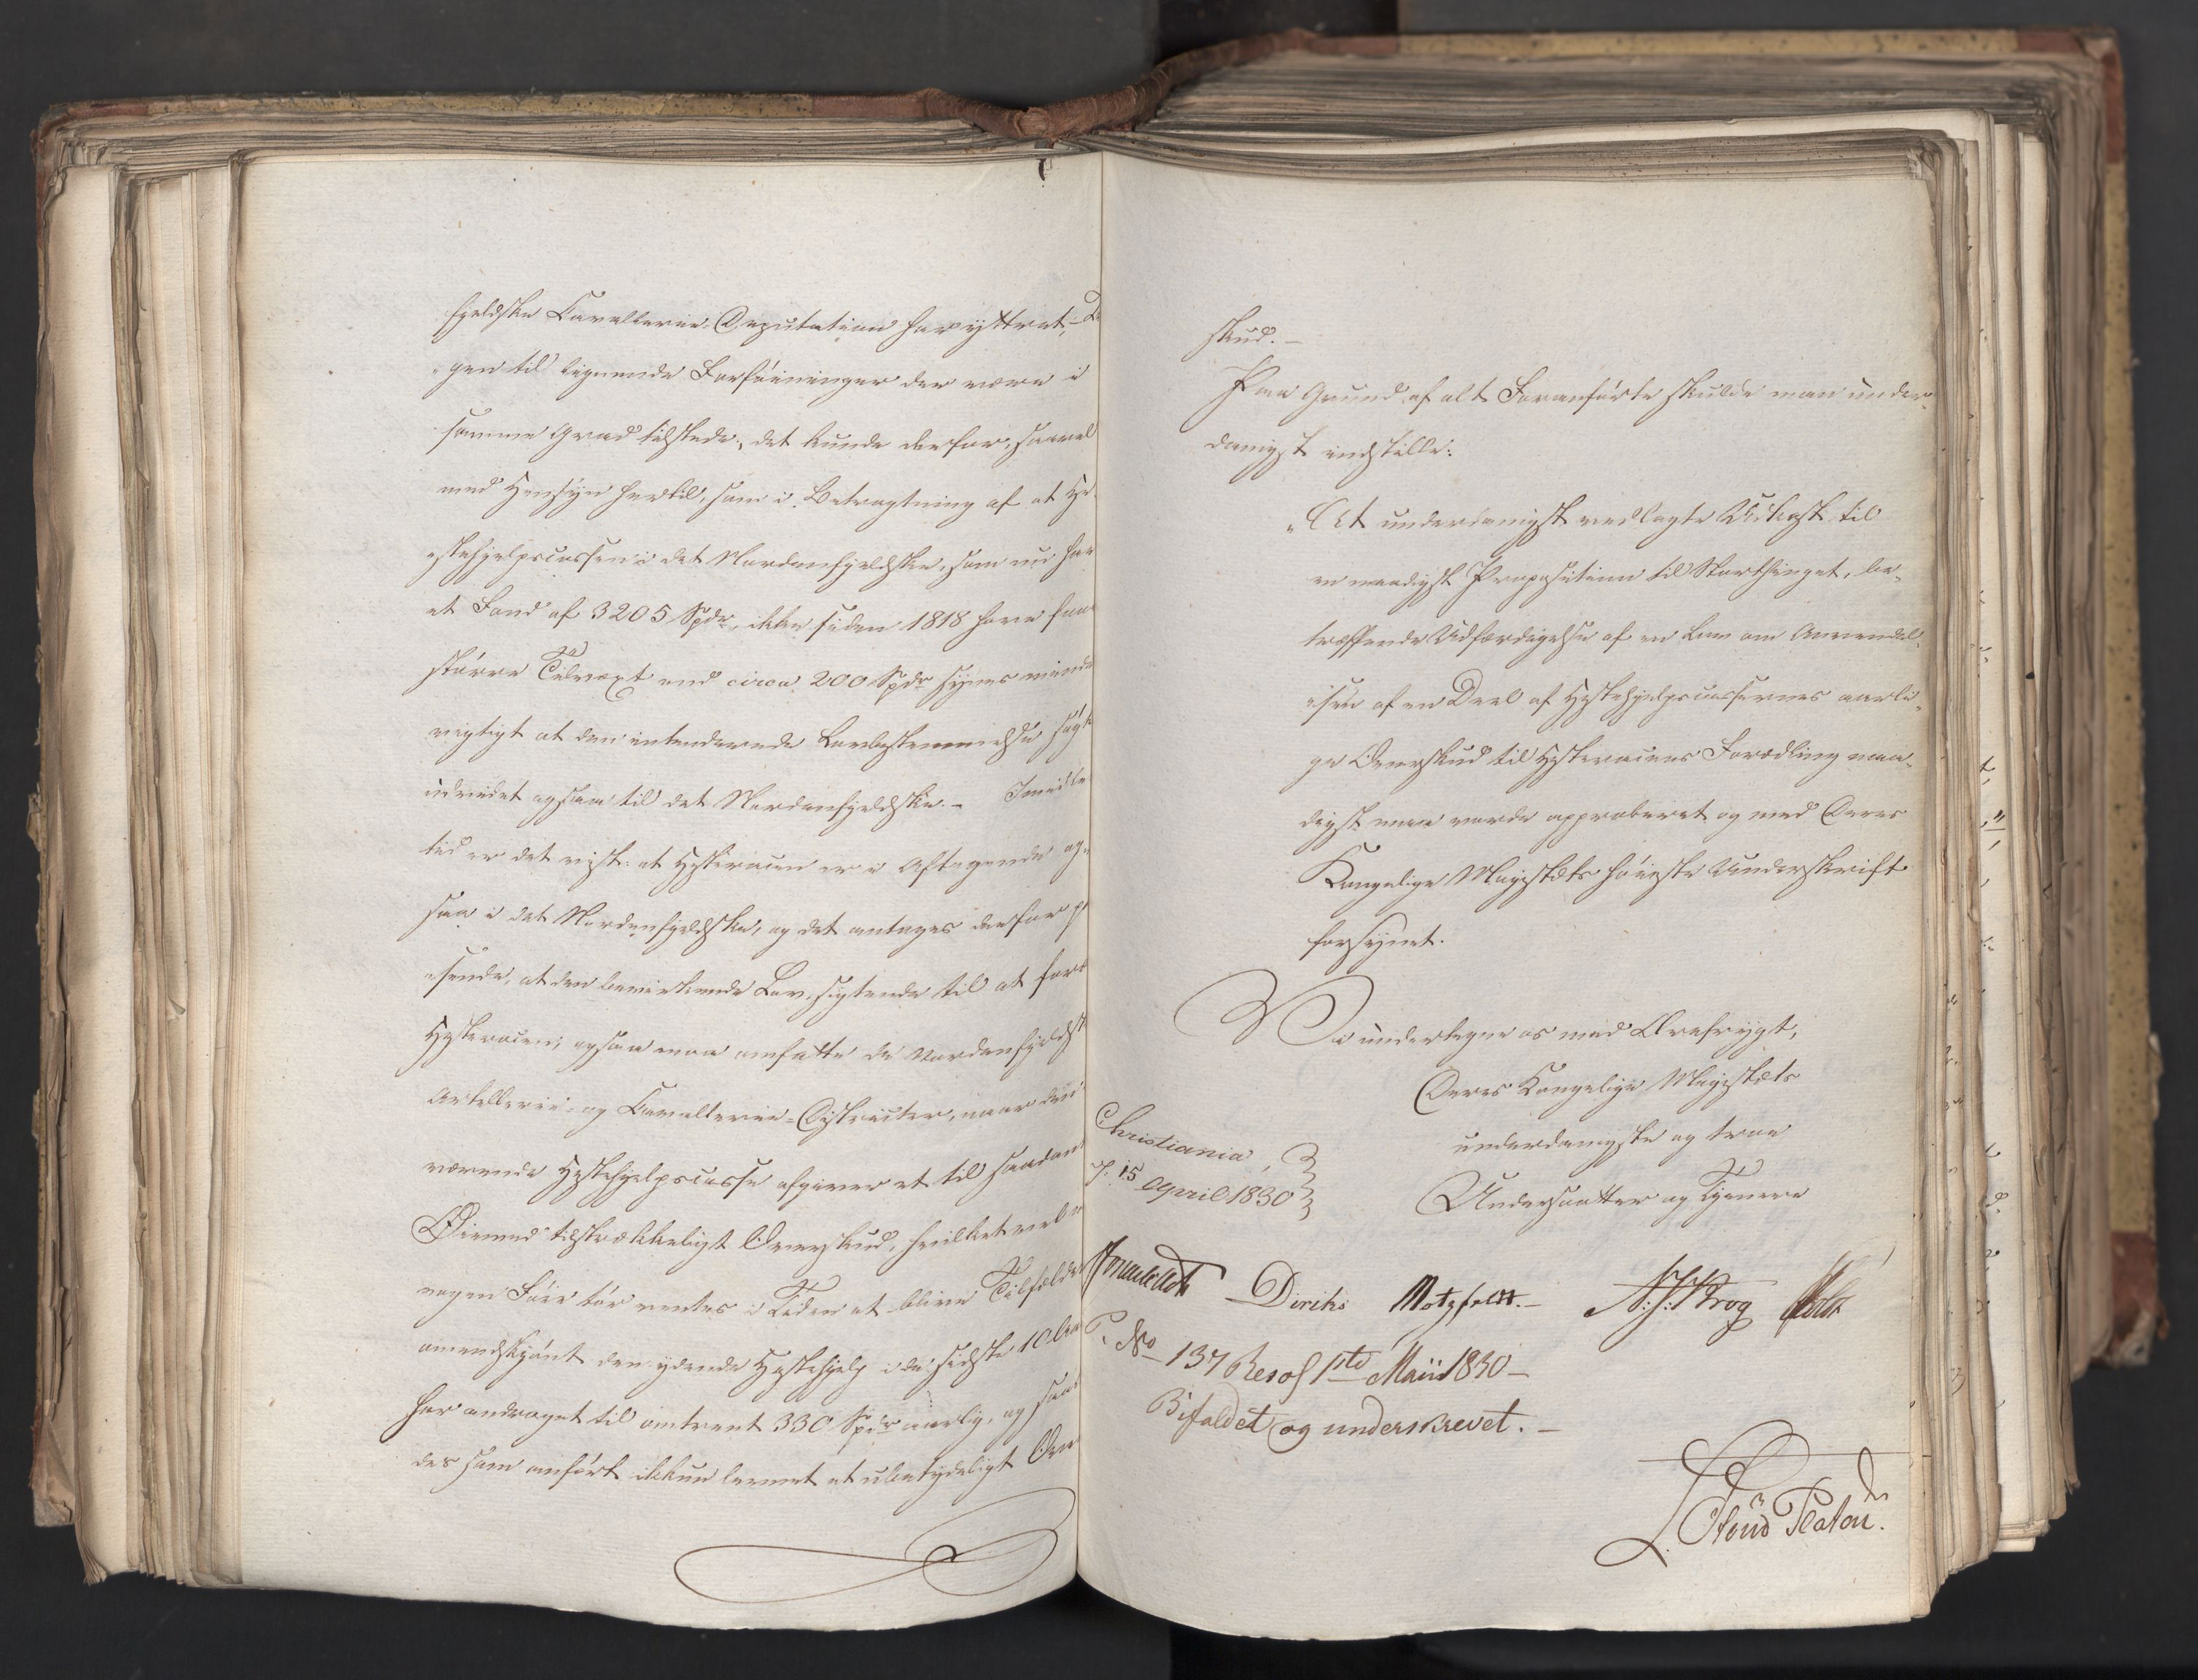 fjeldske Cavallerie-Deputation har yttret,
gen til lignende Forføininger der være i
samme Grad tilstede, det kunde derfor, saavel
med Hensyn hertil, som i Betragtning af at He-
stehjelpscassen i det Nordenfjeldske, som nu har
et Fond af 3205 Spdr, ikke siden 1818 have faaet
større Tilvæxt end circa 200 Spdr synes mindre
vigtigt at den intenderede Lovbestemmelse
udvidet ogsaa til det Nordenfjeldske. – Imidler
tid er det vist: at Hesteracen er i Aftagende og-
saa i det Nordenfjeldske, og det antages derfor
sende, at den bevirkende Lov, sigtende til at
Hesteracen, ogsaa maa omfatte de Nordenfjeldske
Artillerie- og Cavallerie-Districter, naar den
værende Hestehjelpscasse afgiver et til saadant
Øiemed tilstrækkeligt Overskud, hvilket vel
nogen Føie tør ventes i Tiden at blive Tilfældet
omendskjønt den ydende Hestehjelp i de sidste 10 Aar
har andraget til omtrent 330 Spdr aarlig, og saa
des som anført ikkun levnet et ubetydeligt Over
skud. –
Paa Grund af alt Foranførte skulde man under-
danigst indstille:
„At underdanigst vedlagte Udkast til
en naadigst Proposition til Storthinget, be-
træffende Udfærdigelse af en Lov om Anvendel-
sen af en Deel af Hestehjelpscassernes aarli-
ge Overskud til Hesteracens Forædling naa-
digst maa vorde approberet og med Deres
Kongelige Majestæts høieste Underskrift
forsynet.
Vi undertegne os med Ærefrygt,
Deres Kongelige Majestæts
underdanigste og troe
Undersaatter og Tjenere
Christiania,
d: 15 April 1830
Diriks Motzfeldt. – N: J: Krog Holst
P. No 137 Resol 1ste Maii 1830 –
Bifaldet og underskrevet. –
L. Stoud Platou.